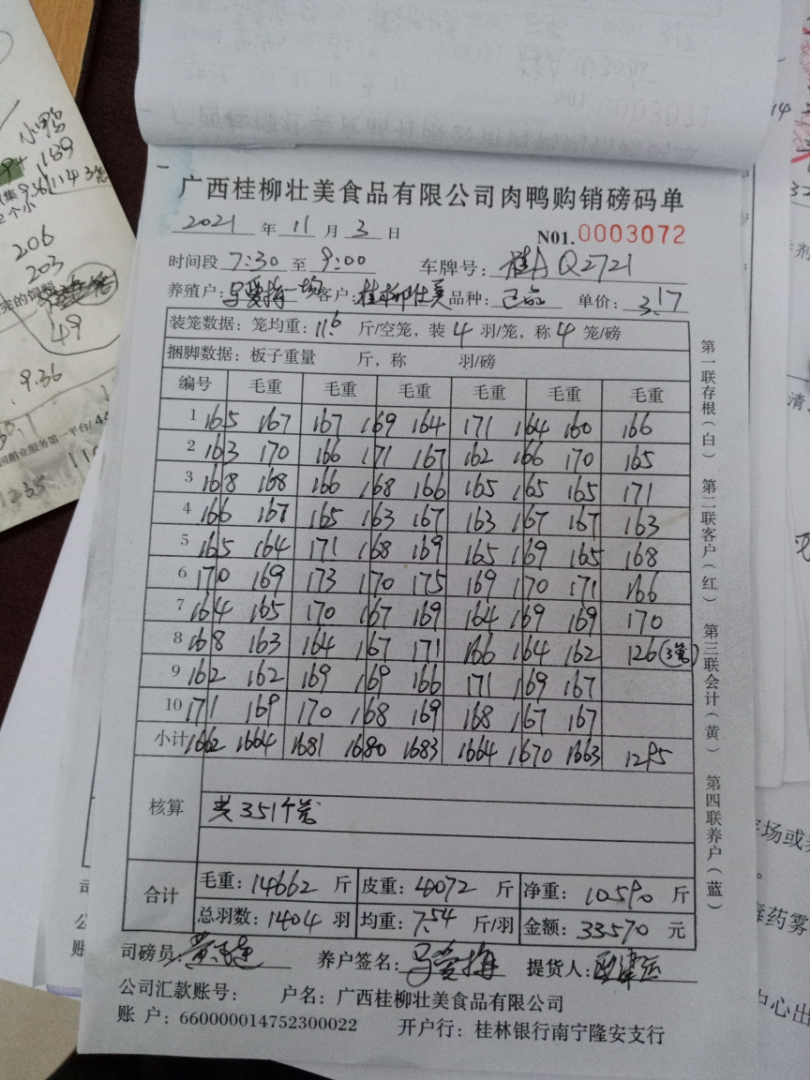 广西桂柳壮美食品有限公司肉鸭购销磅码单
2021 年 11 月 3 日 N01.0003072
时间段 7:30 至 9:00 车牌号: 桂A Q2721
养殖户: 马爱梅一场 客户: 桂柳壮美 品种: 单价: 3.17
装笼数据: 笼均重: 11.6 斤/空笼, 装 4 羽/笼, 称 4 笼/磅
捆脚数据: 板子重量 斤, 称 羽/磅
编号 毛重 毛重 毛重 毛重 毛重 毛重
1 165 167 167 169 164 171 164 160 166
2 163 170 166 171 167 162 166 170 165
3 168 168 166 168 166 165 165 165 171
4 166 167 165 163 167 163 167 167 163
5 165 164 171 168 169 165 169 165 168
6 170 169 173 170 175 169 170 171 166
7 164 165 170 167 169 164 169 169 170
8 168 163 164 167 171 166 164 162 126(3笼)
9 162 162 169 169 166 171 169 167
10 171 169 170 168 169 168 167 167
小计 1662 1664 1681 1680 1683 1664 1670 1663 1295
核算 共351个笼
合计 毛重: 14662 斤 皮重: 4072 斤 净重: 10590 斤
总羽数: 1404 羽 均重: 7.54 斤/羽 金额: 33570 元
司磅员: 养户签名: 马爱梅 提货人:
公司汇款账号: 户名: 广西桂柳壮美食品有限公司
账 户: 660000014752300022 开户行: 桂林银行南宁隆安支行
第一联存根(白) 第二联客户(红) 第三联会计(黄) 第四联养户(蓝)
小鸭
169
114 3笼
2个小
206
203
49
9.36
1235